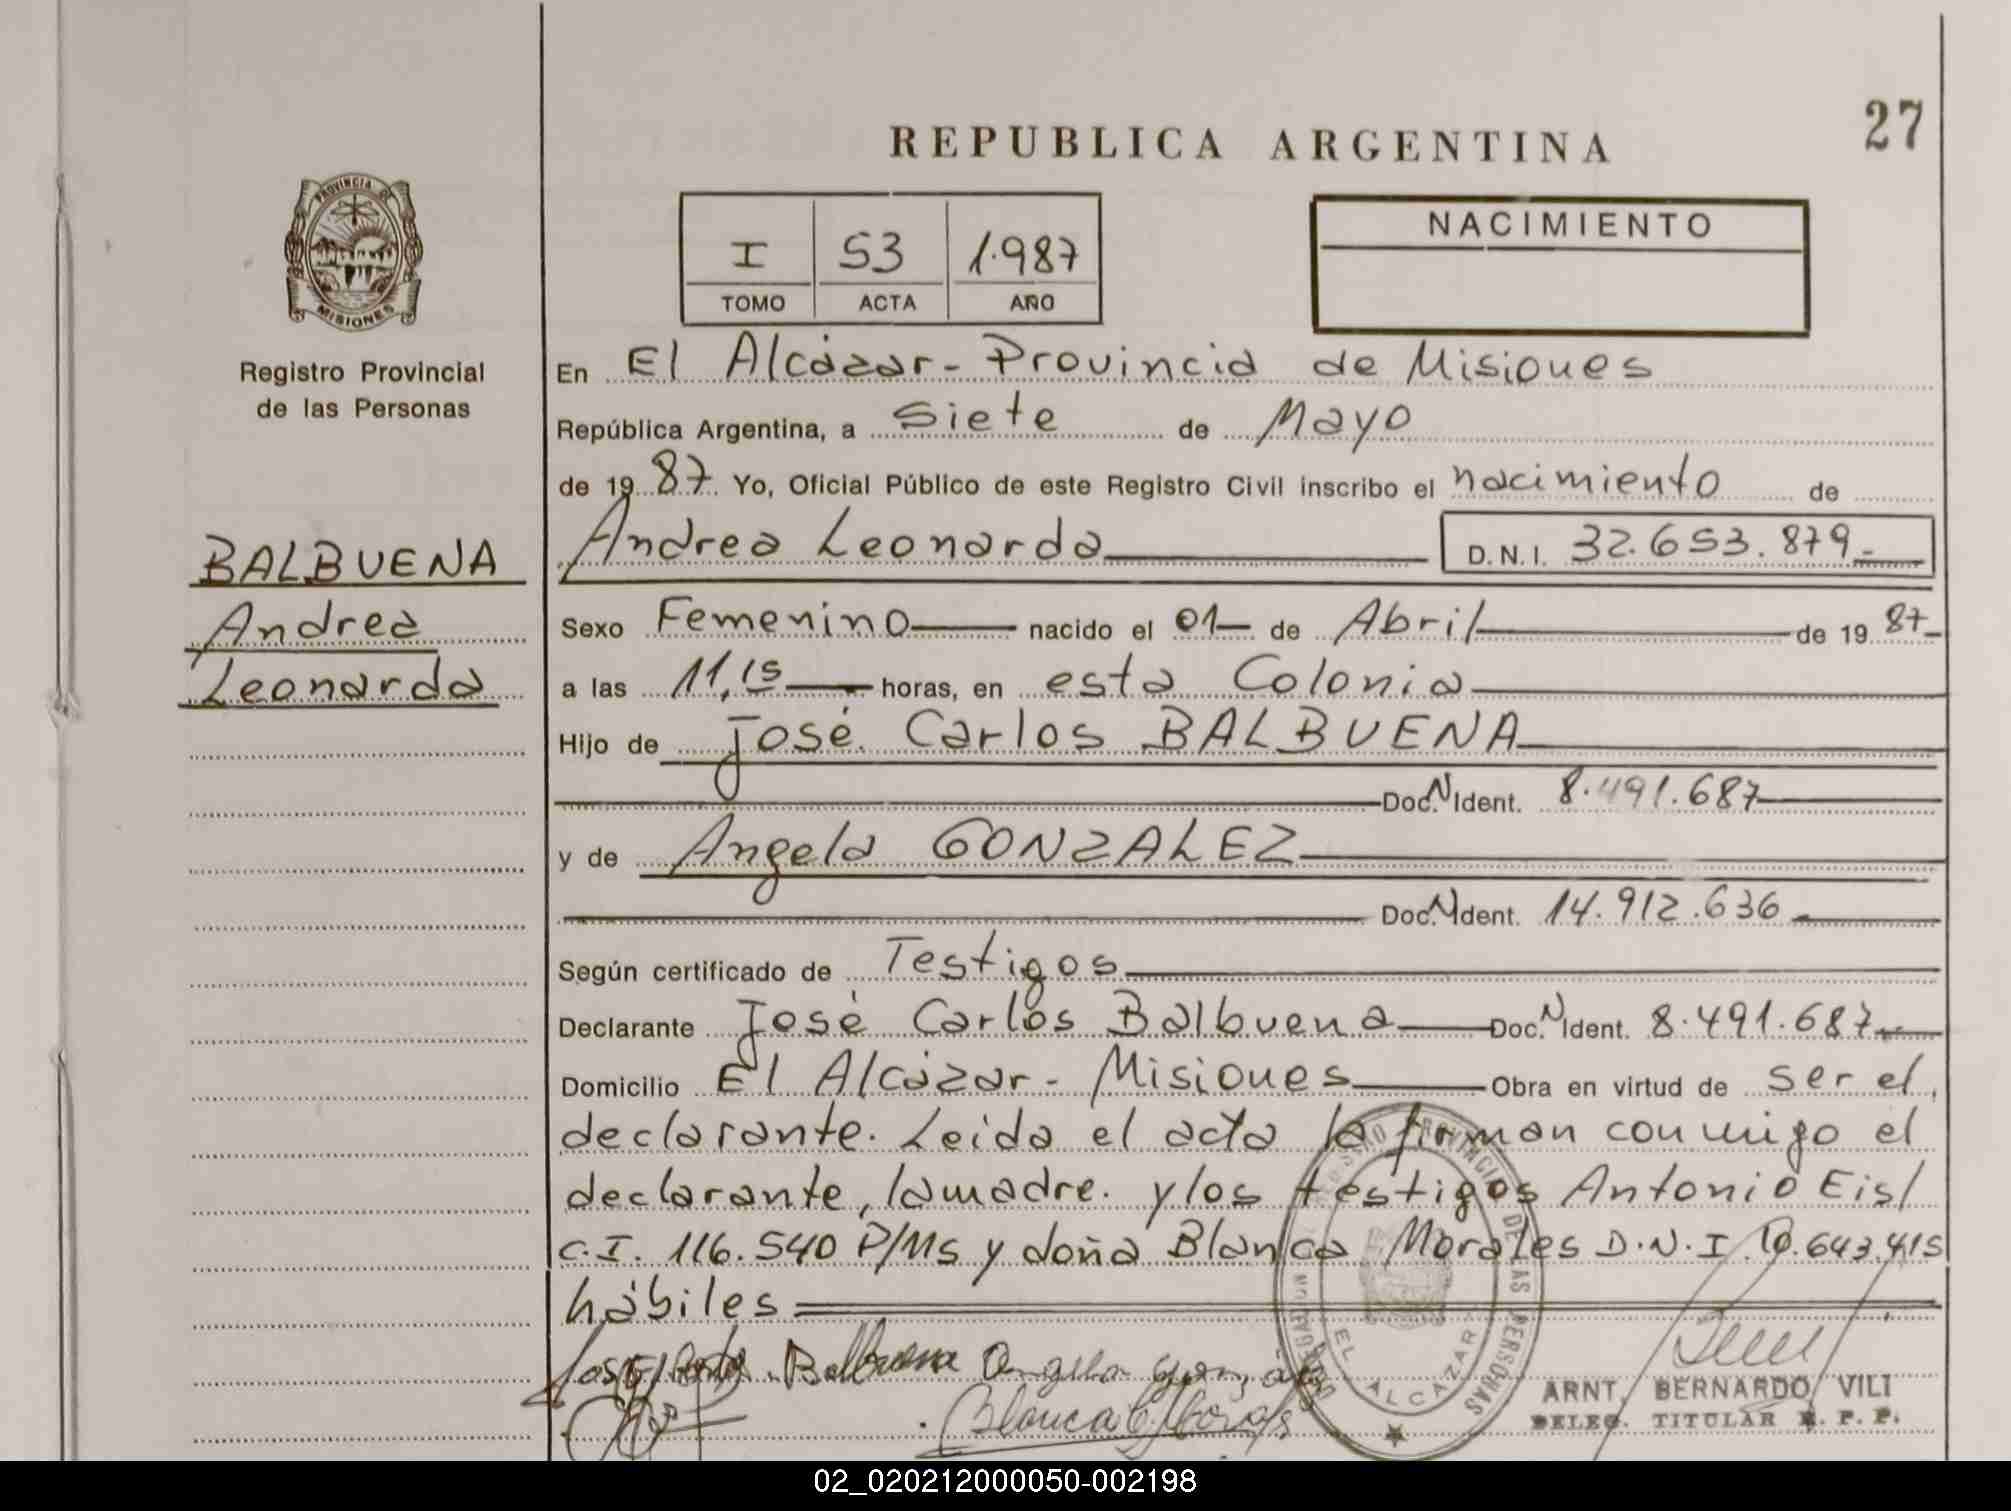 27
REPUBLICA ARGENTINA
PROVINCIA DE
MISIONES
Registro Provincial
de las Personas
I 53 1.987
TOMO ACTA AÑO
NACIMIENTO
En El Alcázar - Provincia de Misiones
República Argentina, a siete de Mayo
de 1987. Yo, Oficial Público de este Registro Civil inscribo el nacimiento de
BALBUENA
Andrea
Leonarda
Andrea Leonarda D.N.I. 32.653.879.-
Sexo Femenino nacido el 01 de Abril de 1987
a las 11,15 horas, en esta Colonia
Hijo de José Carlos BALBUENA
Doc. N Ident. 8.491.687
y de Angela GONZALEZ
Doc. N Ident. 14.912.636
Según certificado de Testigos
Declarante José Carlos Balbuena Doc. N Ident. 8.491.687
Domicilio El Alcázar - Misiones Obra en virtud de ser el
declarante. Leida el acta la firman conmigo el
declarante, la madre. y los testigos Antonio Eisl
C.I. 116.540 P/Ms y doña Blanca Morales D.N.I. 10.643.415
hábiles
Balbuena Angela
Blanca
REGISTRO PROVINCIAL DE LAS PERSONAS
EL ALCAZAR
ARNT, BERNARDO VILI
DELEG. TITULAR R. P. P.
02_020212000050-002198